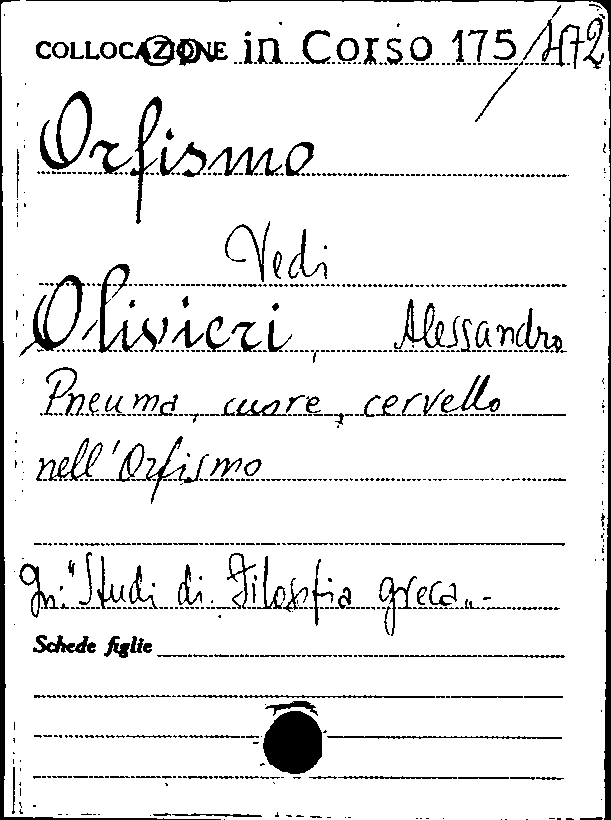 COLLOCAZIONE in Corso 175/472
Orfismo
Vedi
Olivieri, Alessandro
Pneuma, cuore, cervello
nell'Orfismo
In: "Studi di Filosofia greca".-
Schede figlie